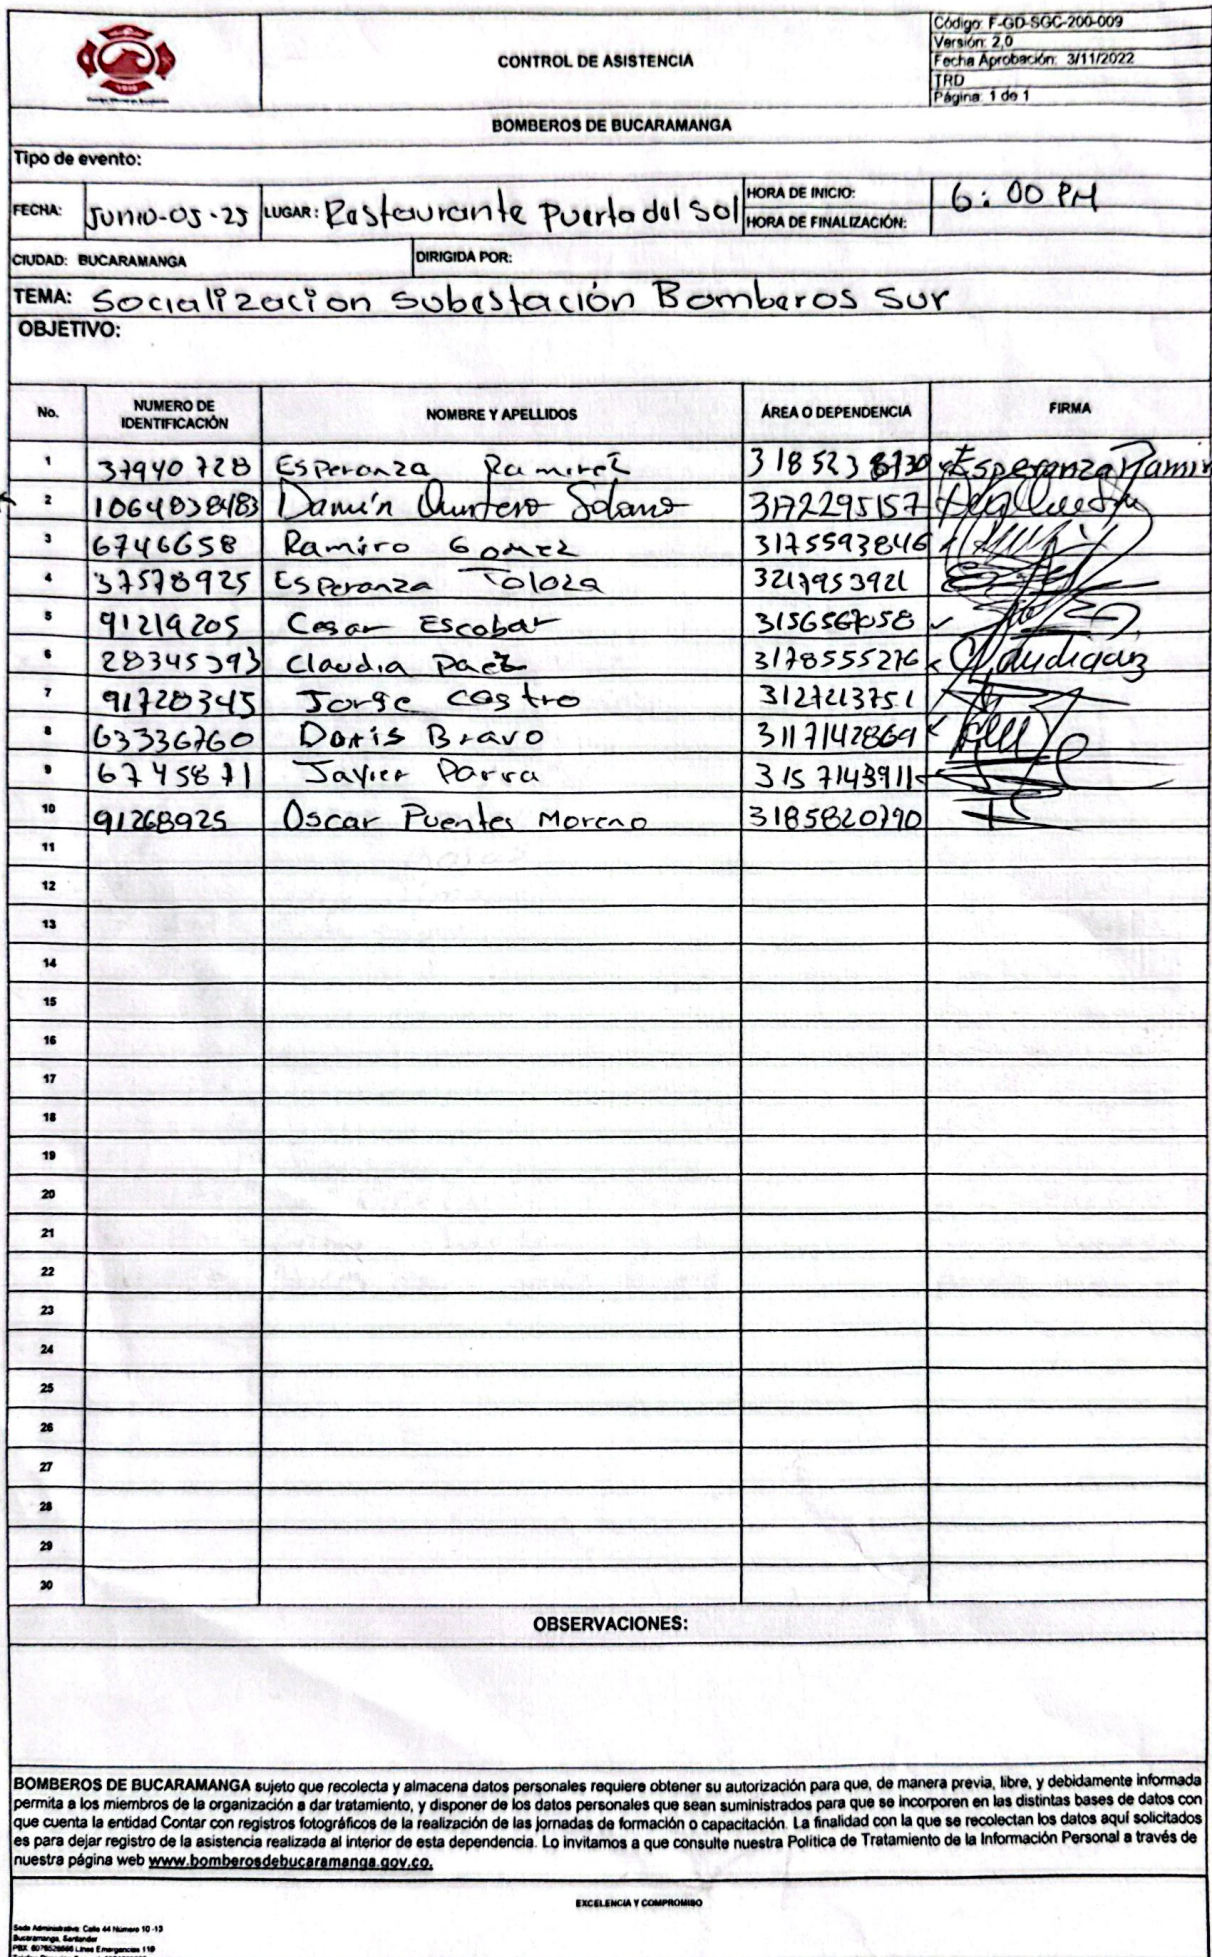 CONTROL DE ASISTENCIA
Código: F-GD-SGC-200-009
Versión: 2,0
Fecha Aprobación: 3/11/2022
TRD
Página: 1 de 1
BOMBEROS DE BUCARAMANGA
Tipo de evento:
FECHA: Junio-05-25 LUGAR: Restaurante puerta del sol HORA DE INICIO: 6:00 PM
HORA DE FINALIZACIÓN:
CIUDAD: BUCARAMANGA DIRIGIDA POR:
TEMA: Socialización subestación Bomberos Sur
OBJETIVO:
No. NUMERO DE IDENTIFICACIÓN NOMBRE Y APELLIDOS ÁREA O DEPENDENCIA FIRMA
1 37940728 Esperanza Ramirez 3185238730 Esperanza Ramir
2 1064838483 Damín Quintero Solano 3172295157
3 6746658 Ramiro Gomez 3175593846
4 37578925 Esperanza Toloza 3217953921
5 91219205 Cesar Escobar 3156567058
6 28345393 Claudia Paez 3178555276
7 91728345 Jorge Castro 3127213751
8 63336760 Doris Bravo 3117142869
9 6745871 Javier Parra 3157143911
10 91268925 Oscar Puentes Moreno 3185820790
11
12
13
14
15
16
17
18
19
20
21
22
23
24
25
26
27
28
29
30
OBSERVACIONES:
BOMBEROS DE BUCARAMANGA sujeto que recolecta y almacena datos personales requiere obtener su autorización para que, de manera previa, libre, y debidamente informada
permita a los miembros de la organización a dar tratamiento, y disponer de los datos personales que sean suministrados para que se incorporen en las distintas bases de datos con
que cuenta la entidad Contar con registros fotográficos de la realización de las jornadas de formación o capacitación. La finalidad con la que se recolectan los datos aquí solicitados
es para dejar registro de la asistencia realizada al interior de esta dependencia. Lo invitamos a que consulte nuestra Política de Tratamiento de la Información Personal a través de
nuestra página web www.bomberosdebucaramanga.gov.co.
EXCELENCIA Y COMPROMISO
Sede Administrativa: Calle 44 Número 10 -13
Bucaramanga, Santander
PBX: 6076526666 Línea Emergencias 119